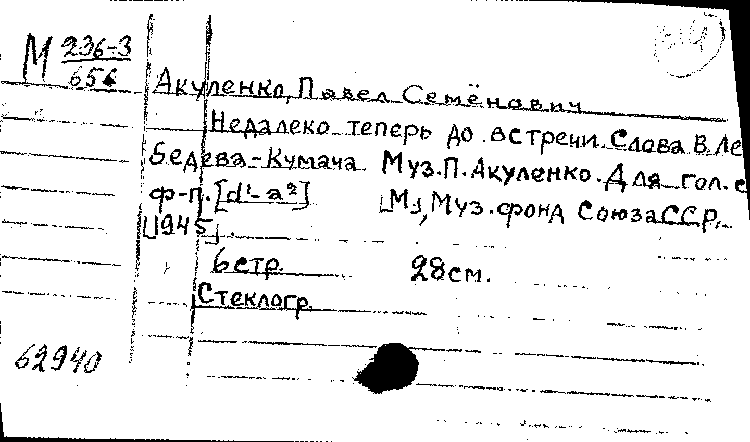 М 236-3
656
Акуленко, Павел Семёнович
Недалеко теперь до встречи. Слова В. Ле
бедева-Кумача Муз. П. Акуленко. Для гол. с
ф-п. [d¹-a²] [М], Муз. фонд Союза ССР,
[1945].
6 стр. 28 см.
Стеклогр.
62940